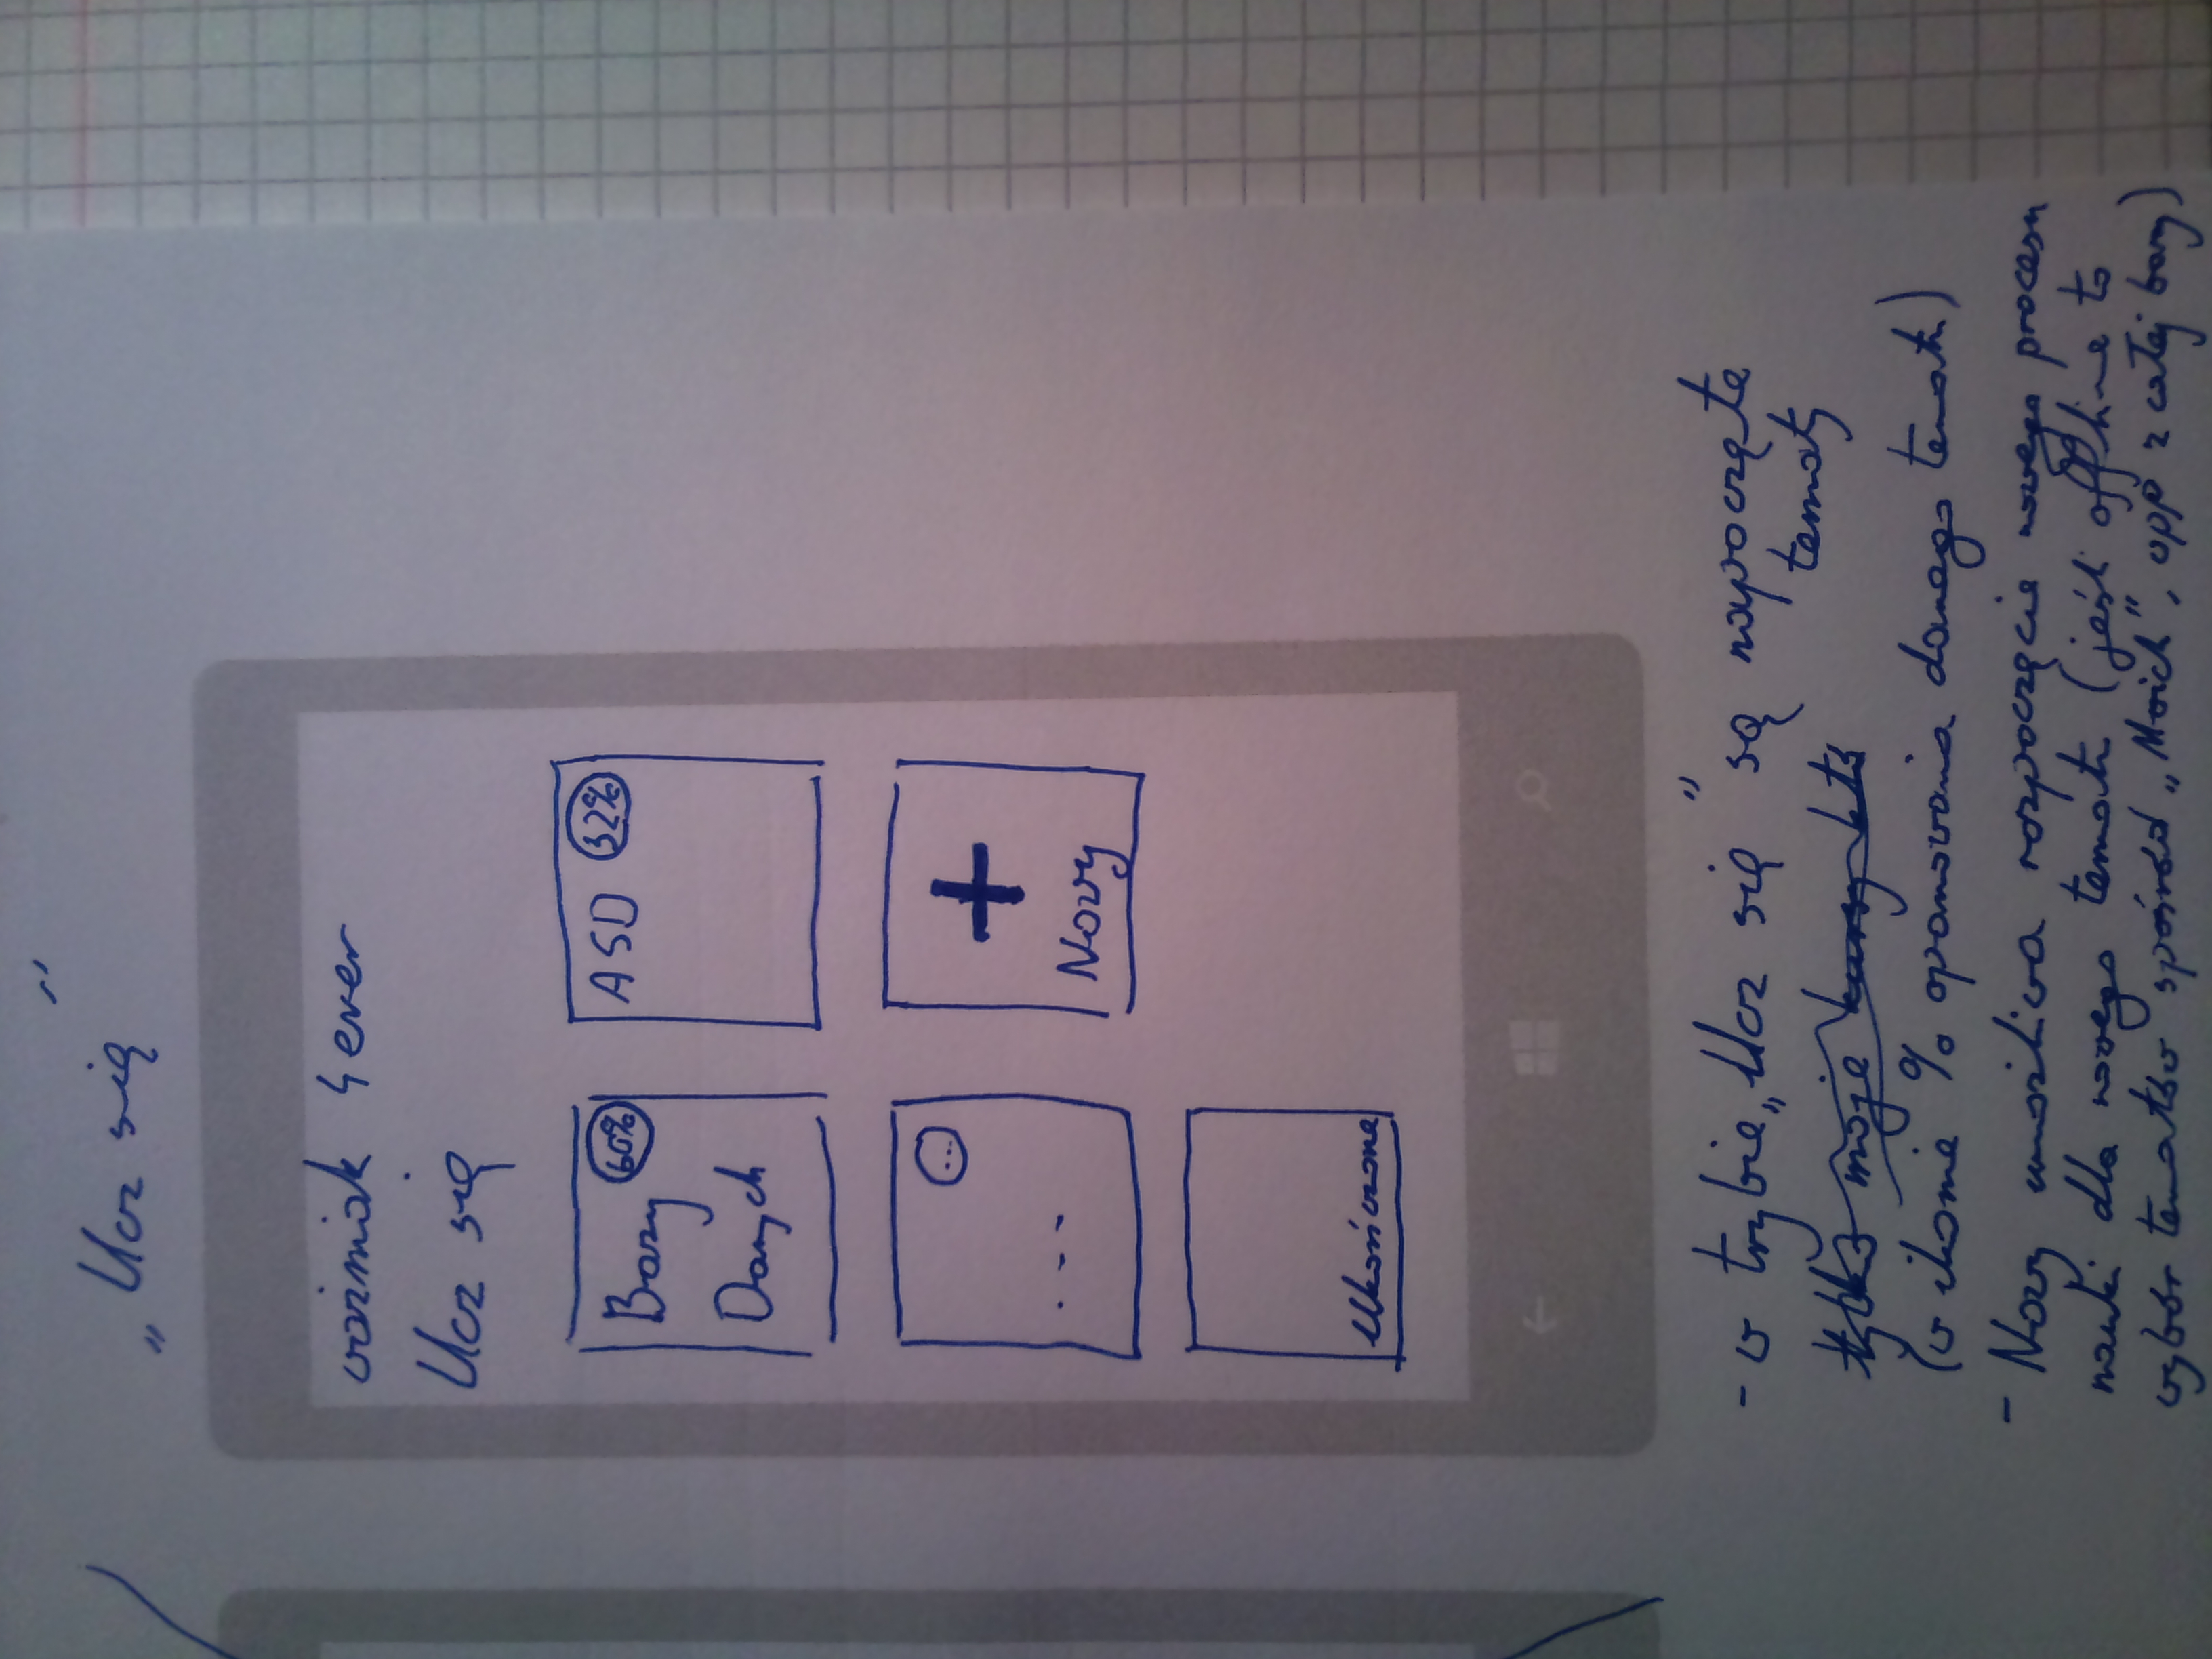 „Ucz się"
woźniak 4ever
Ucz się
Bazy 60%
Danych
ASD 32%
... ...
+
Nowy
Ukończone
- w trybie „Ucz się" są rozpoczęte
tematy
tylko moje
(w ikonie % opanowania danego tematu)
- Nowy umożliwa rozpoczęcie nowego procesu
nauki dla nowego tematu (jeśli offline to
wybór tematów spośród „Moich", opp z całej bazy)